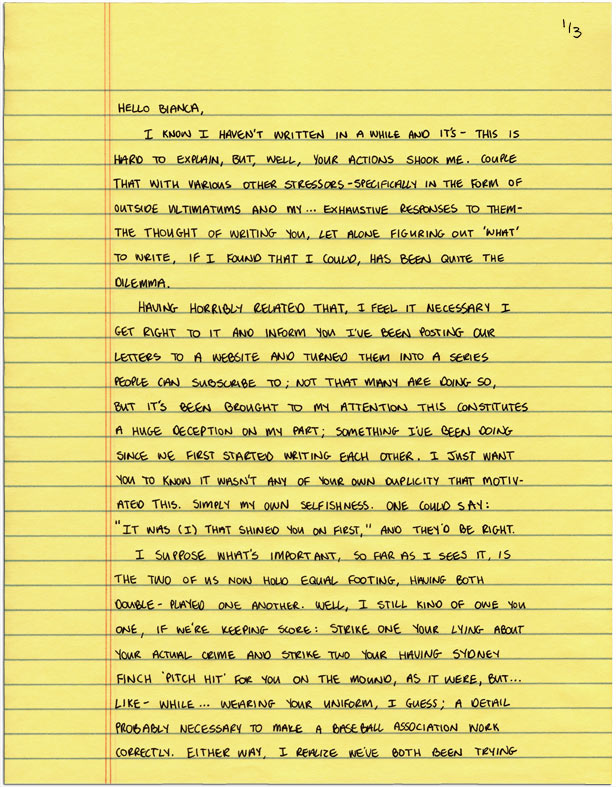 1/3
HELLO BIANCA,
I KNOW I HAVEN'T WRITTEN IN A WHILE AND IT'S - THIS IS
HARD TO EXPLAIN, BUT, WELL, YOUR ACTIONS SHOOK ME. COUPLE
THAT WITH VARIOUS OTHER STRESSORS - SPECIFICALLY IN THE FORM OF
OUTSIDE ULTIMATUMS AND MY... EXHAUSTIVE RESPONSES TO THEM -
THE THOUGHT OF WRITING YOU, LET ALONE FIGURING OUT 'WHAT'
TO WRITE, IF I FOUND THAT I COULD, HAS BEEN QUITE THE
DILEMMA.
HAVING HORRIBLY RELATED THAT, I FEEL IT NECESSARY I
GET RIGHT TO IT AND INFORM YOU I'VE BEEN POSTING OUR
LETTERS TO A WEBSITE AND TURNED THEM INTO A SERIES
PEOPLE CAN SUBSCRIBE TO; NOT THAT MANY ARE DOING SO,
BUT IT'S BEEN BROUGHT TO MY ATTENTION THIS CONSTITUTES
A HUGE DECEPTION ON MY PART; SOMETHING I'VE BEEN DOING
SINCE WE FIRST STARTED WRITING EACH OTHER. I JUST WANT
YOU TO KNOW IT WASN'T ANY OF YOUR OWN DUPLICITY THAT MOTIV-
ATED THIS. SIMPLY MY OWN SELFISHNESS. ONE COULD SAY:
"IT WAS (I) THAT SHINED YOU ON FIRST," AND THEY'D BE RIGHT.
I SUPPOSE WHAT'S IMPORTANT, SO FAR AS I SEES IT, IS
THE TWO OF US NOW HOLD EQUAL FOOTING, HAVING BOTH
DOUBLE-PLAYED ONE ANOTHER. WELL, I STILL KIND OF OWE YOU
ONE, IF WE'RE KEEPING SCORE: STRIKE ONE YOUR LYING ABOUT
YOUR ACTUAL CRIME AND STRIKE TWO YOUR HAVING SYDNEY
FINCH 'PITCH HIT' FOR YOU ON THE MOUND, AS IT WERE, BUT...
LIKE - WHILE... WEARING YOUR UNIFORM, I GUESS; A DETAIL
PROBABLY NECESSARY TO MAKE A BASEBALL ASSOCIATION WORK
CORRECTLY. EITHER WAY, I REALIZE WE'VE BOTH BEEN TRYING